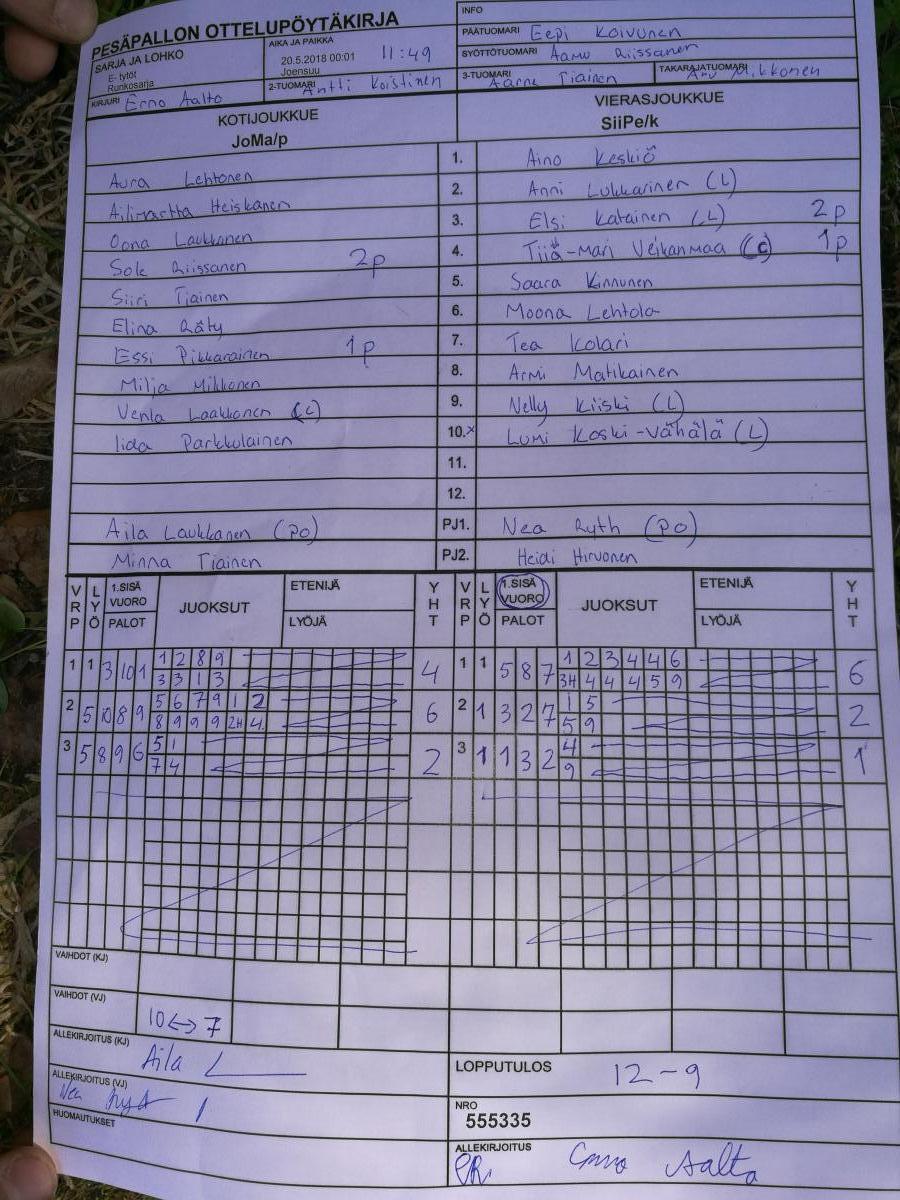 PESÄPALLON OTTELUPÖYTÄKIRJA
INFO
SARJA JA LOHKO
E- tytöt
Runkosarja
AIKA JA PAIKKA
20.5.2018 00:01 11:49
Joensuu
PÄÄTUOMARI Eepi Koivunen
SYÖTTÖTUOMARI Aamu Riissanen
KIRJURI Erno Aalto
2-TUOMARI Antti Koistinen
3-TUOMARI Aarne Tiainen
TAKARAJATUOMARI Mikkonen
KOTIJOUKKUE
JoMa/p
VIERASJOUKKUE
SiiPe/k
Aura Lehtonen 1. Aino Keskiö
Ailimartta Heiskanen 2. Anni Lukkarinen (L)
Oona Laukkanen 3. Elsi Katainen (L) 2p
Sole Riissanen 2p 4. Tiia-Mari Veikanmaa (C) 1p
Siiri Tiainen 5. Saara Kinnunen
Elina Räty 6. Moona Lehtola
Essi Pikkarainen 1p 7. Tea Kolari
Milja Mikkonen 8. Armi Matikainen
Venla Laakkonen (C) 9. Nelly Kiiski (L)
Iida Parkkulainen 10.x Lumi Koski-Vähälä (L)
11.
12.
Aila Laukkanen (PO) PJ1. Nea Ryth (PO)
Minna Tiainen PJ2. Heidi Hirvonen
VRP LYÖ 1.SISÄ VUORO PALOT JUOKSUT ETENIJÄ LYÖJÄ YHT VRP LYÖ 1.SISÄ VUORO PALOT JUOKSUT ETENIJÄ LYÖJÄ YHT
1 1 3 10 1 1 2 8 9 4 1 1 5 8 7 1 2 3 4 4 6 6
3 3 1 3 3H 4 4 4 5 9
2 5 10 8 9 5 6 7 9 1 2 6 2 1 3 2 7 1 5 2
8 9 9 9 2H 4 5 9
3 5 8 9 6 5 1 2 3 1 1 3 2 4 1
7 4 9
VAIHDOT (KJ)
VAIHDOT (VJ) 10<->7
ALLEKIRJOITUS (KJ) Aila L
ALLEKIRJOITUS (VJ) Nea
HUOMAUTUKSET
LOPPUTULOS 12-9
NRO
555335
ALLEKIRJOITUS
Erno Aalto